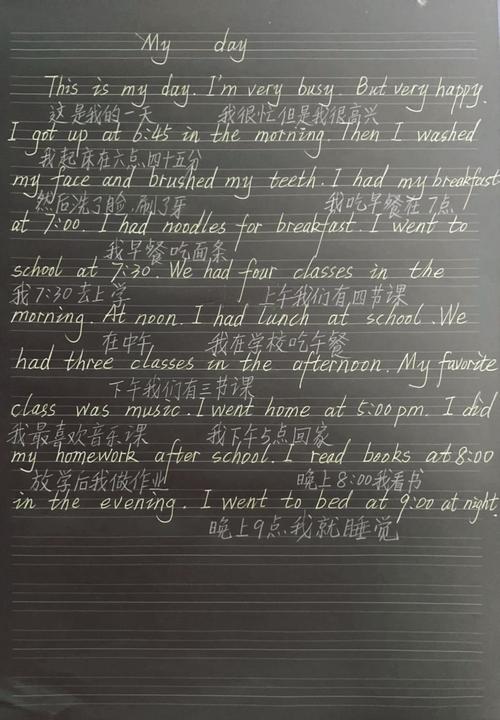 My day
This is my day. I'm very busy. But very happy.
这是我的一天 我很忙但是我很高兴
I got up at 6:45 in the morning. Then I washed
我起床在六点四十五分
my face and brushed my teeth. I had my breakfast
然后洗了脸.刷了牙 我吃早餐在7点
at 7:00. I had noodles for breakfast. I went to
我早餐吃面条
school at 7:30. We had four classes in the
我7:30去上学 上午我们有四节课
morning. At noon. I had lunch at school. We
在中午 我在学校吃午餐
had three classes in the afternoon. My favorite
下午我们有三节课
class was music. I went home at 5:00 pm. I did
我最喜欢音乐课 我下午5点回家
my homework after school. I read books at 8:00
放学后我做作业 晚上8:00我看书
in the evening. I went to bed at 9:00 at night.
晚上9点我就睡觉